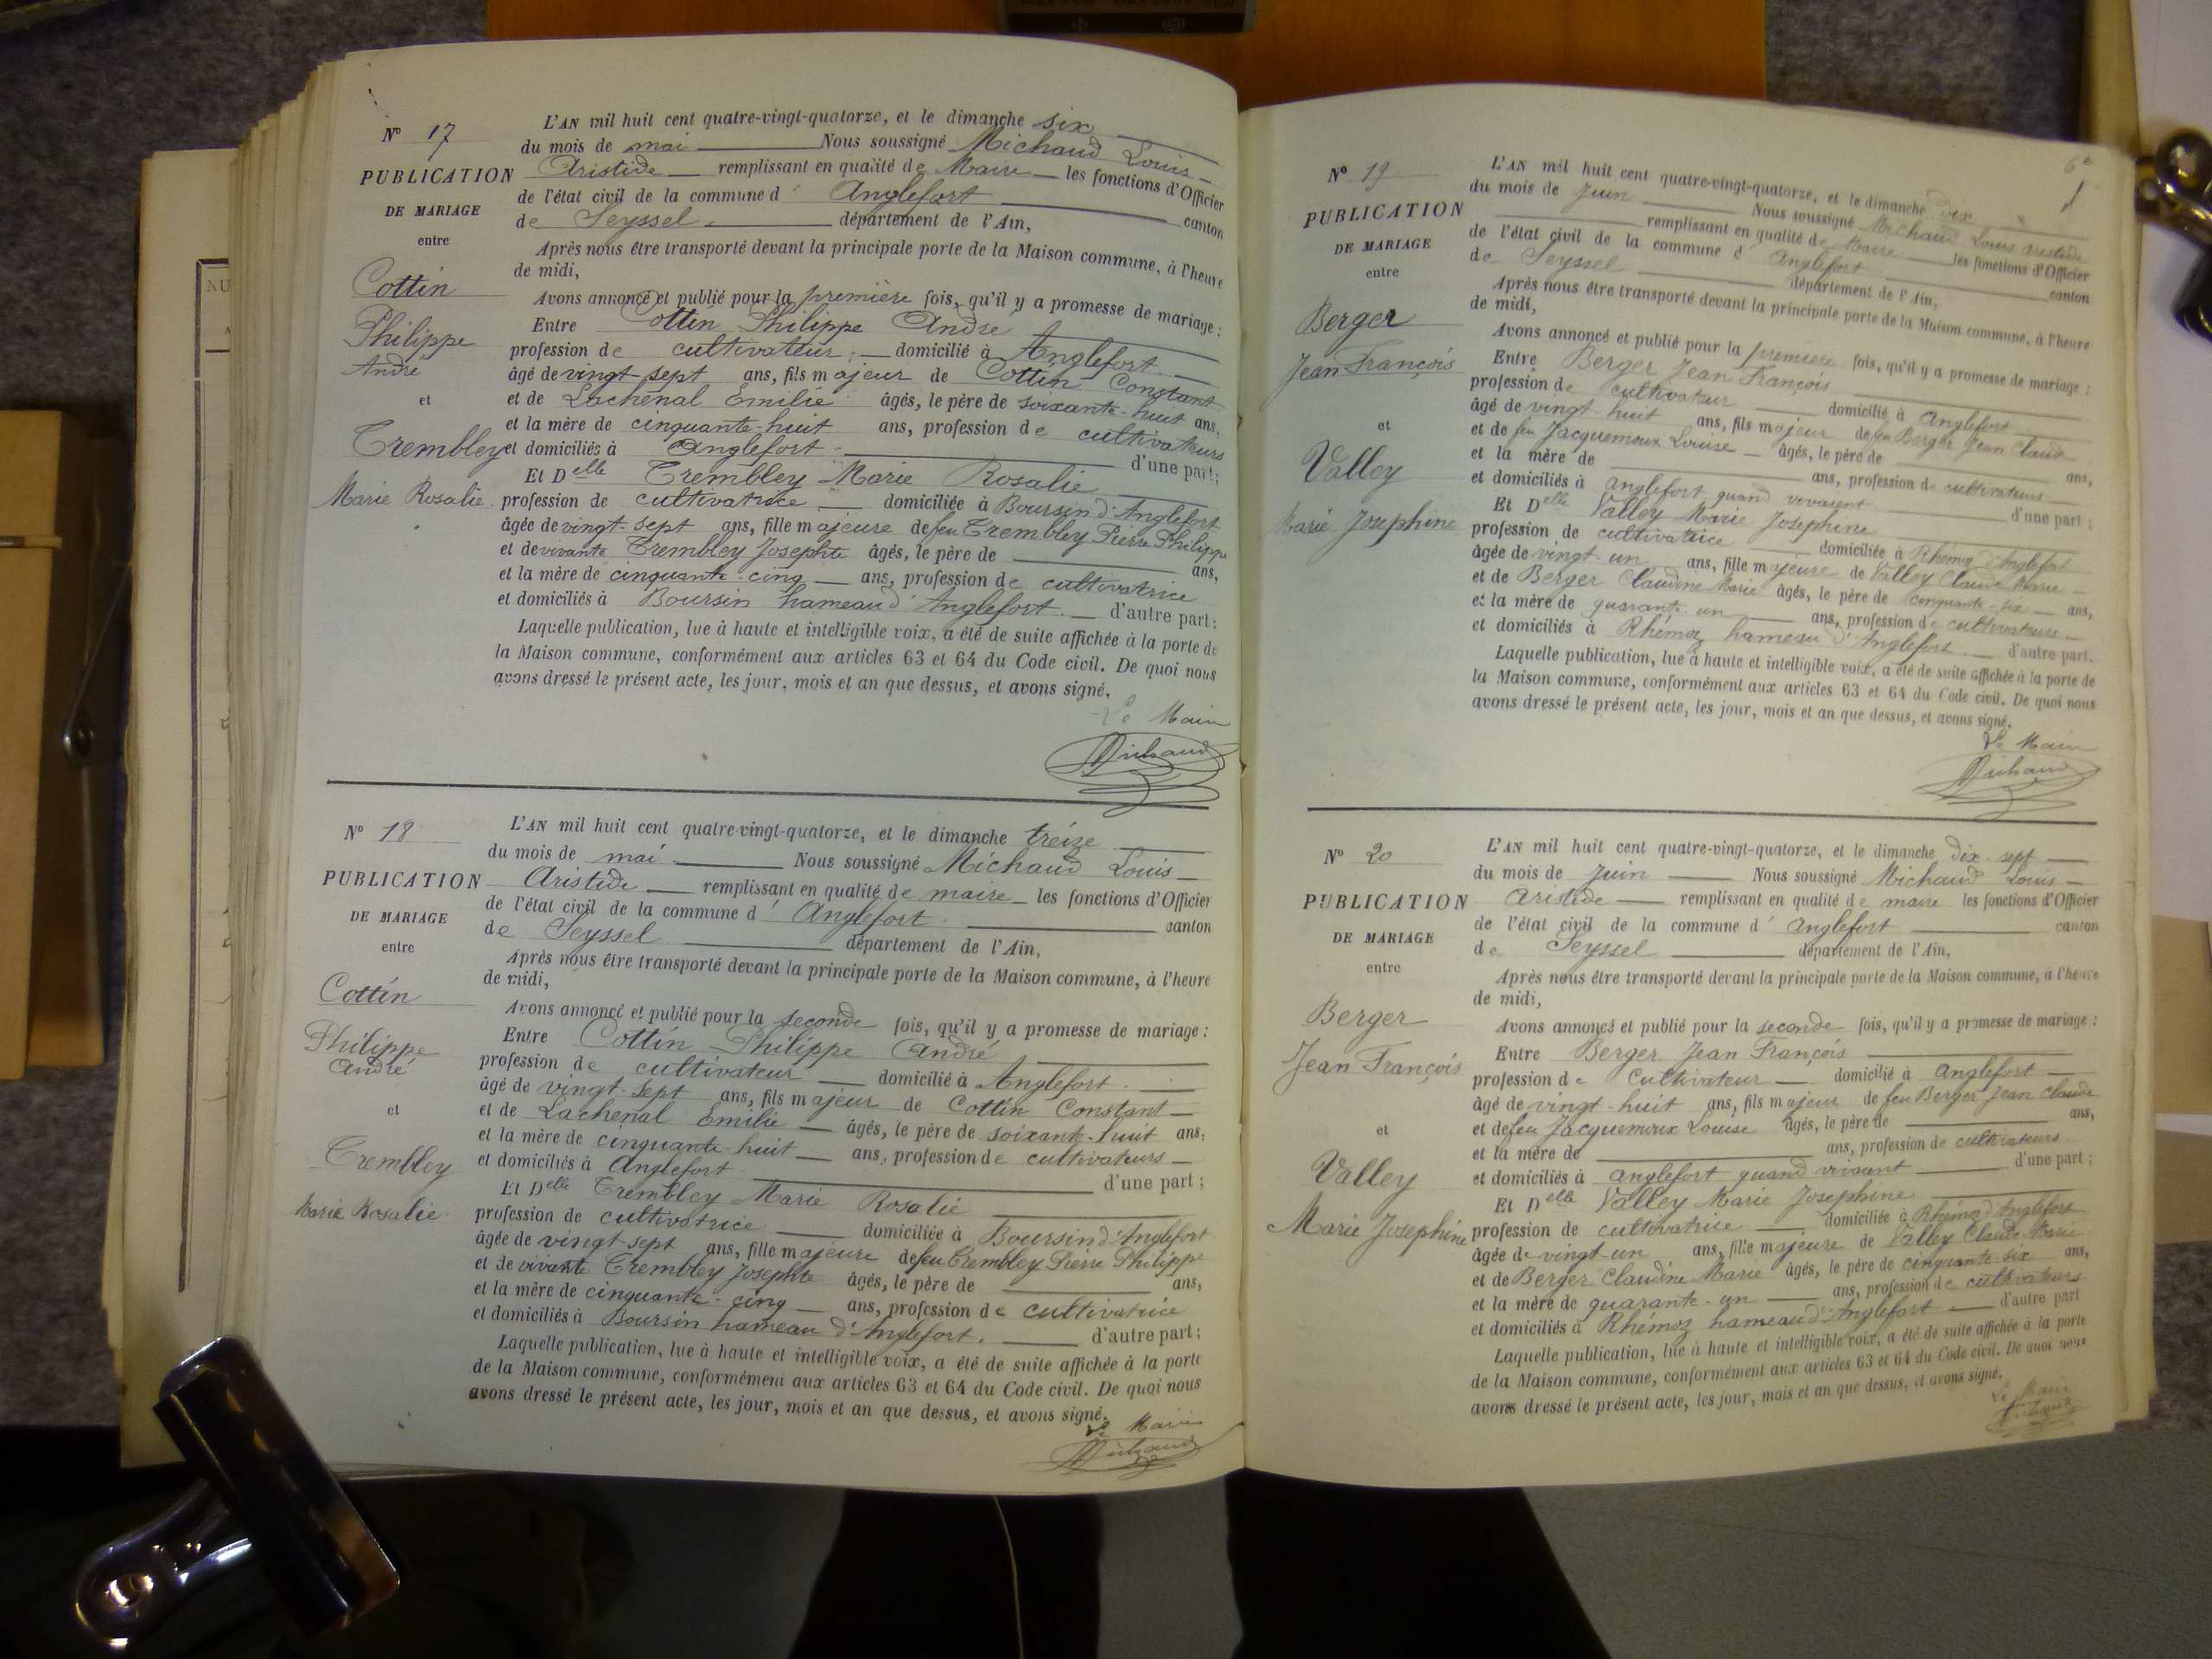 N° 17
PUBLICATION
DE MARIAGE
entre
Cottin
Philippe
André
et
Trembley
Marie Rosalie
L'AN mil huit cent quatre-vingt-quatorze, et le dimanche six
du mois de mai Nous soussigné Michaud Louis
Aristide remplissant en qualité de Maire les fonctions d'Officier
de l'état civil de la commune d' Anglefort canton
de Seyssel département de l'Ain,
Après nous être transporté devant la principale porte de la Maison commune, à l'heure
de midi,
Avons annoncé et publié pour la première fois, qu'il y a promesse de mariage :
Entre Cottin Philippe André
profession de cultivateur domicilié à Anglefort
âgé de vingt-sept ans, fils majeur de Cottin Constant
et de Lachenal Emilie âgés, le père de soixante-huit ans,
et la mère de cinquante-huit ans, profession de cultivateurs
et domiciliés à Anglefort d'une part ;
Et Delle Trembley Marie Rosalie
profession de cultivatrice domiciliée à Boursin d'Anglefort
âgée de vingt-sept ans, fille majeure de feu Trembley Pierre Philippe
et de vivante Trembley Josephte âgés, le père de ans,
et la mère de cinquante-cinq ans, profession de cultivatrice
et domiciliés à Boursin hameau d'Anglefort. d'autre part ;
Laquelle publication, lue à haute et intelligible voix, a été de suite affichée à la porte de
la Maison commune, conformément aux articles 63 et 64 du Code civil. De quoi nous
avons dressé le présent acte, les jour, mois et an que dessus, et avons signé.
Le Maire
Michaud
N° 18
PUBLICATION
DE MARIAGE
entre
Cottin
Philippe
André
et
Trembley
Marie Rosalie
L'AN mil huit cent quatre-vingt-quatorze, et le dimanche treize
du mois de mai Nous soussigné Michaud Louis
Aristide remplissant en qualité de maire les fonctions d'Officier
de l'état civil de la commune d' Anglefort canton
de Seyssel département de l'Ain,
Après nous être transporté devant la principale porte de la Maison commune, à l'heure
de midi,
Avons annoncé et publié pour la seconde fois, qu'il y a promesse de mariage :
Entre Cottin Philippe André
profession de cultivateur domicilié à Anglefort.
âgé de vingt-sept ans, fils majeur de Cottin Constant
et de Lachenal Emilie âgés, le père de soixante-huit ans,
et la mère de cinquante-huit ans, profession de cultivateurs
et domiciliés à Anglefort d'une part ;
Et Delle Trembley Marie Rosalie
profession de cultivatrice domiciliée à Boursin d'Anglefort
âgée de vingt-sept ans, fille majeure de feu Trembley Pierre Philippe
et de vivante Trembley Josephte âgés, le père de ans,
et la mère de cinquante-cinq ans, profession de cultivatrice
et domiciliés à Boursin hameau d'Anglefort. d'autre part ;
Laquelle publication, lue à haute et intelligible voix, a été de suite affichée à la porte
de la Maison commune, conformément aux articles 63 et 64 du Code civil. De quoi nous
avons dressé le présent acte, les jour, mois et an que dessus, et avons signé.
Le Maire
Michaud
N° 19
PUBLICATION
DE MARIAGE
entre
Berger
Jean François
et
Valley
Marie Josephine
L'AN mil huit cent quatre-vingt-quatorze, et le dimanche dix
du mois de Juin Nous soussigné Michaud Louis aristide
remplissant en qualité de Maire les fonctions d'Officier
de l'état civil de la commune d' Anglefort canton
de Seyssel département de l'Ain,
Après nous être transporté devant la principale porte de la Maison commune, à l'heure
de midi,
Avons annoncé et publié pour la premiere fois, qu'il y a promesse de mariage :
Entre Berger Jean François
profession de cultivateur domicilié à Anglefort
âgé de vingt-huit ans, fils majeur de feu Berger Jean Claude
et de feu Jacquemoux Louise âgés, le père de ans,
et la mère de ans, profession de cultivateurs
et domiciliés à Anglefort quand vivaient d'une part ;
Et Delle Valley Marie Josephine
profession de cultivatrice domiciliée à Rhémoz d'Anglefort
âgée de vingt-un ans, fille majeure de Valley Claude Marie
et de Berger Claudine Marie âgés, le père de cinquante-six ans,
et la mère de quarante-un ans, profession de cultivateurs
et domiciliés à Rhémoz hameau d'Anglefort. d'autre part.
Laquelle publication, lue à haute et intelligible voix, a été de suite affichée à la porte de
la Maison commune, conformément aux articles 63 et 64 du Code civil. De quoi nous
avons dressé le présent acte, les jour, mois et an que dessus, et avons signé.
Le Maire
Michaud
N° 20
PUBLICATION
DE MARIAGE
entre
Berger
Jean François
et
Valley
Marie Josephine
L'AN mil huit cent quatre-vingt-quatorze, et le dimanche dix-sept
du mois de Juin Nous soussigné Michaud Louis
aristide remplissant en qualité de maire les fonctions d'Officier
de l'état civil de la commune d' Anglefort canton
de Seyssel département de l'Ain,
Après nous être transporté devant la principale porte de la Maison commune, à l'heure
de midi,
Avons annoncé et publié pour la seconde fois, qu'il y a promesse de mariage :
Entre Berger Jean François
profession de Cultivateur domicilié à Anglefort
âgé de vingt-huit ans, fils majeur de feu Berger Jean Claude
et de feu Jacquemoux Louise âgés, le père de ans,
et la mère de ans, profession de cultivateurs
et domiciliés à Anglefort quand vivaient d'une part ;
Et Delle Valley Marie Josephine
profession de cultivatrice domiciliée à Rhémoz d'Anglefort
âgée de vingt-un ans, fille majeure de Valley Claude Marie
et de Berger Claudine Marie âgés, le père de cinquante-six ans,
et la mère de quarante-un ans, profession de cultivateurs
et domiciliés à Rhémoz hameau d'Anglefort d'autre part
Laquelle publication, lue à haute et intelligible voix, a été de suite affichée à la porte
de la Maison commune, conformément aux articles 63 et 64 du Code civil. De quoi nous
avons dressé le présent acte, les jour, mois et an que dessus, et avons signé.
Le Maire
Michaud